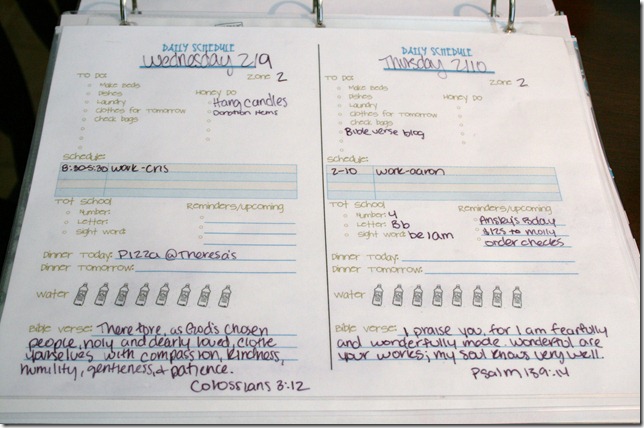 DAILY SCHEDULE
Wednesday 2/9
To Do:
Zone 2
Make Beds
Dishes
Laundry
Clothes for Tomorrow
Check Bags
Honey Do
Hang candles
Donation items
Schedule:
8:30-5:30 work-cris
Tot School
Number:
Letter:
Sight Word:
Reminders/Upcoming
Dinner Today: Pizza @ Theresa's
Dinner Tomorrow:
Water
Bible Verse: Therefore, as God's chosen
people, holy and dearly loved, clothe
yourselves with compassion, kindness,
humility, gentleness, & patience.
Colossians 3:12
DAILY SCHEDULE
Thursday 2/10
To Do:
Zone 2
Make Beds
Dishes
Laundry
Clothes for Tomorrow
Check Bags
Bible verse blog
Honey Do
Schedule:
2-10 work-aaron
Tot School
Number: 4
Letter: Bb
Sight Word: be 1 am
Reminders/Upcoming
Ansley's Bday
$125 to Molly
order checks
Dinner Today:
Dinner Tomorrow:
Water
Bible Verse: I praise you, for I am fearfully
and wonderfully made. Wonderful are
your works; my soul knows very well.
Psalm 139:14